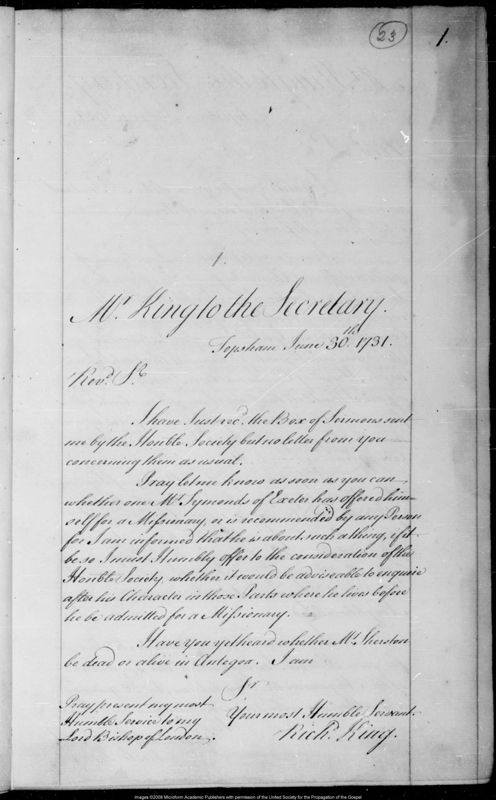 23
1.
1.
Mr. King to the Secretary.
Topsham June 30th. 1731.
Revd. Sr.
I have Just recd. the Box of Sermons sent
me by the Honble Society but no letter from you
concerning them as usual.
Pray let me know as soon as you can,
whether one Mr. Symonds of Exeter has offered him-
self for a Missionary, or is recommended by any Person
for I am informed that he is about such a thing, if it
be so I must Humbly offer to the consideration of the
Honble Society, whether it would be adviseable to enquire
after his Character in those Parts where he lives before
he be admitted for a Missionary.
Have you yet heard whether Mr. Sherston
be dead or alive in Antegoa. I am
Sr
Pray present my most
Humble Service to my
Lord Bishop of London.
Your most Humble Servant.
Richd. King.
Images ©2008 Microform Academic Publishers with permission of the United Society for the Propagation of the Gospel